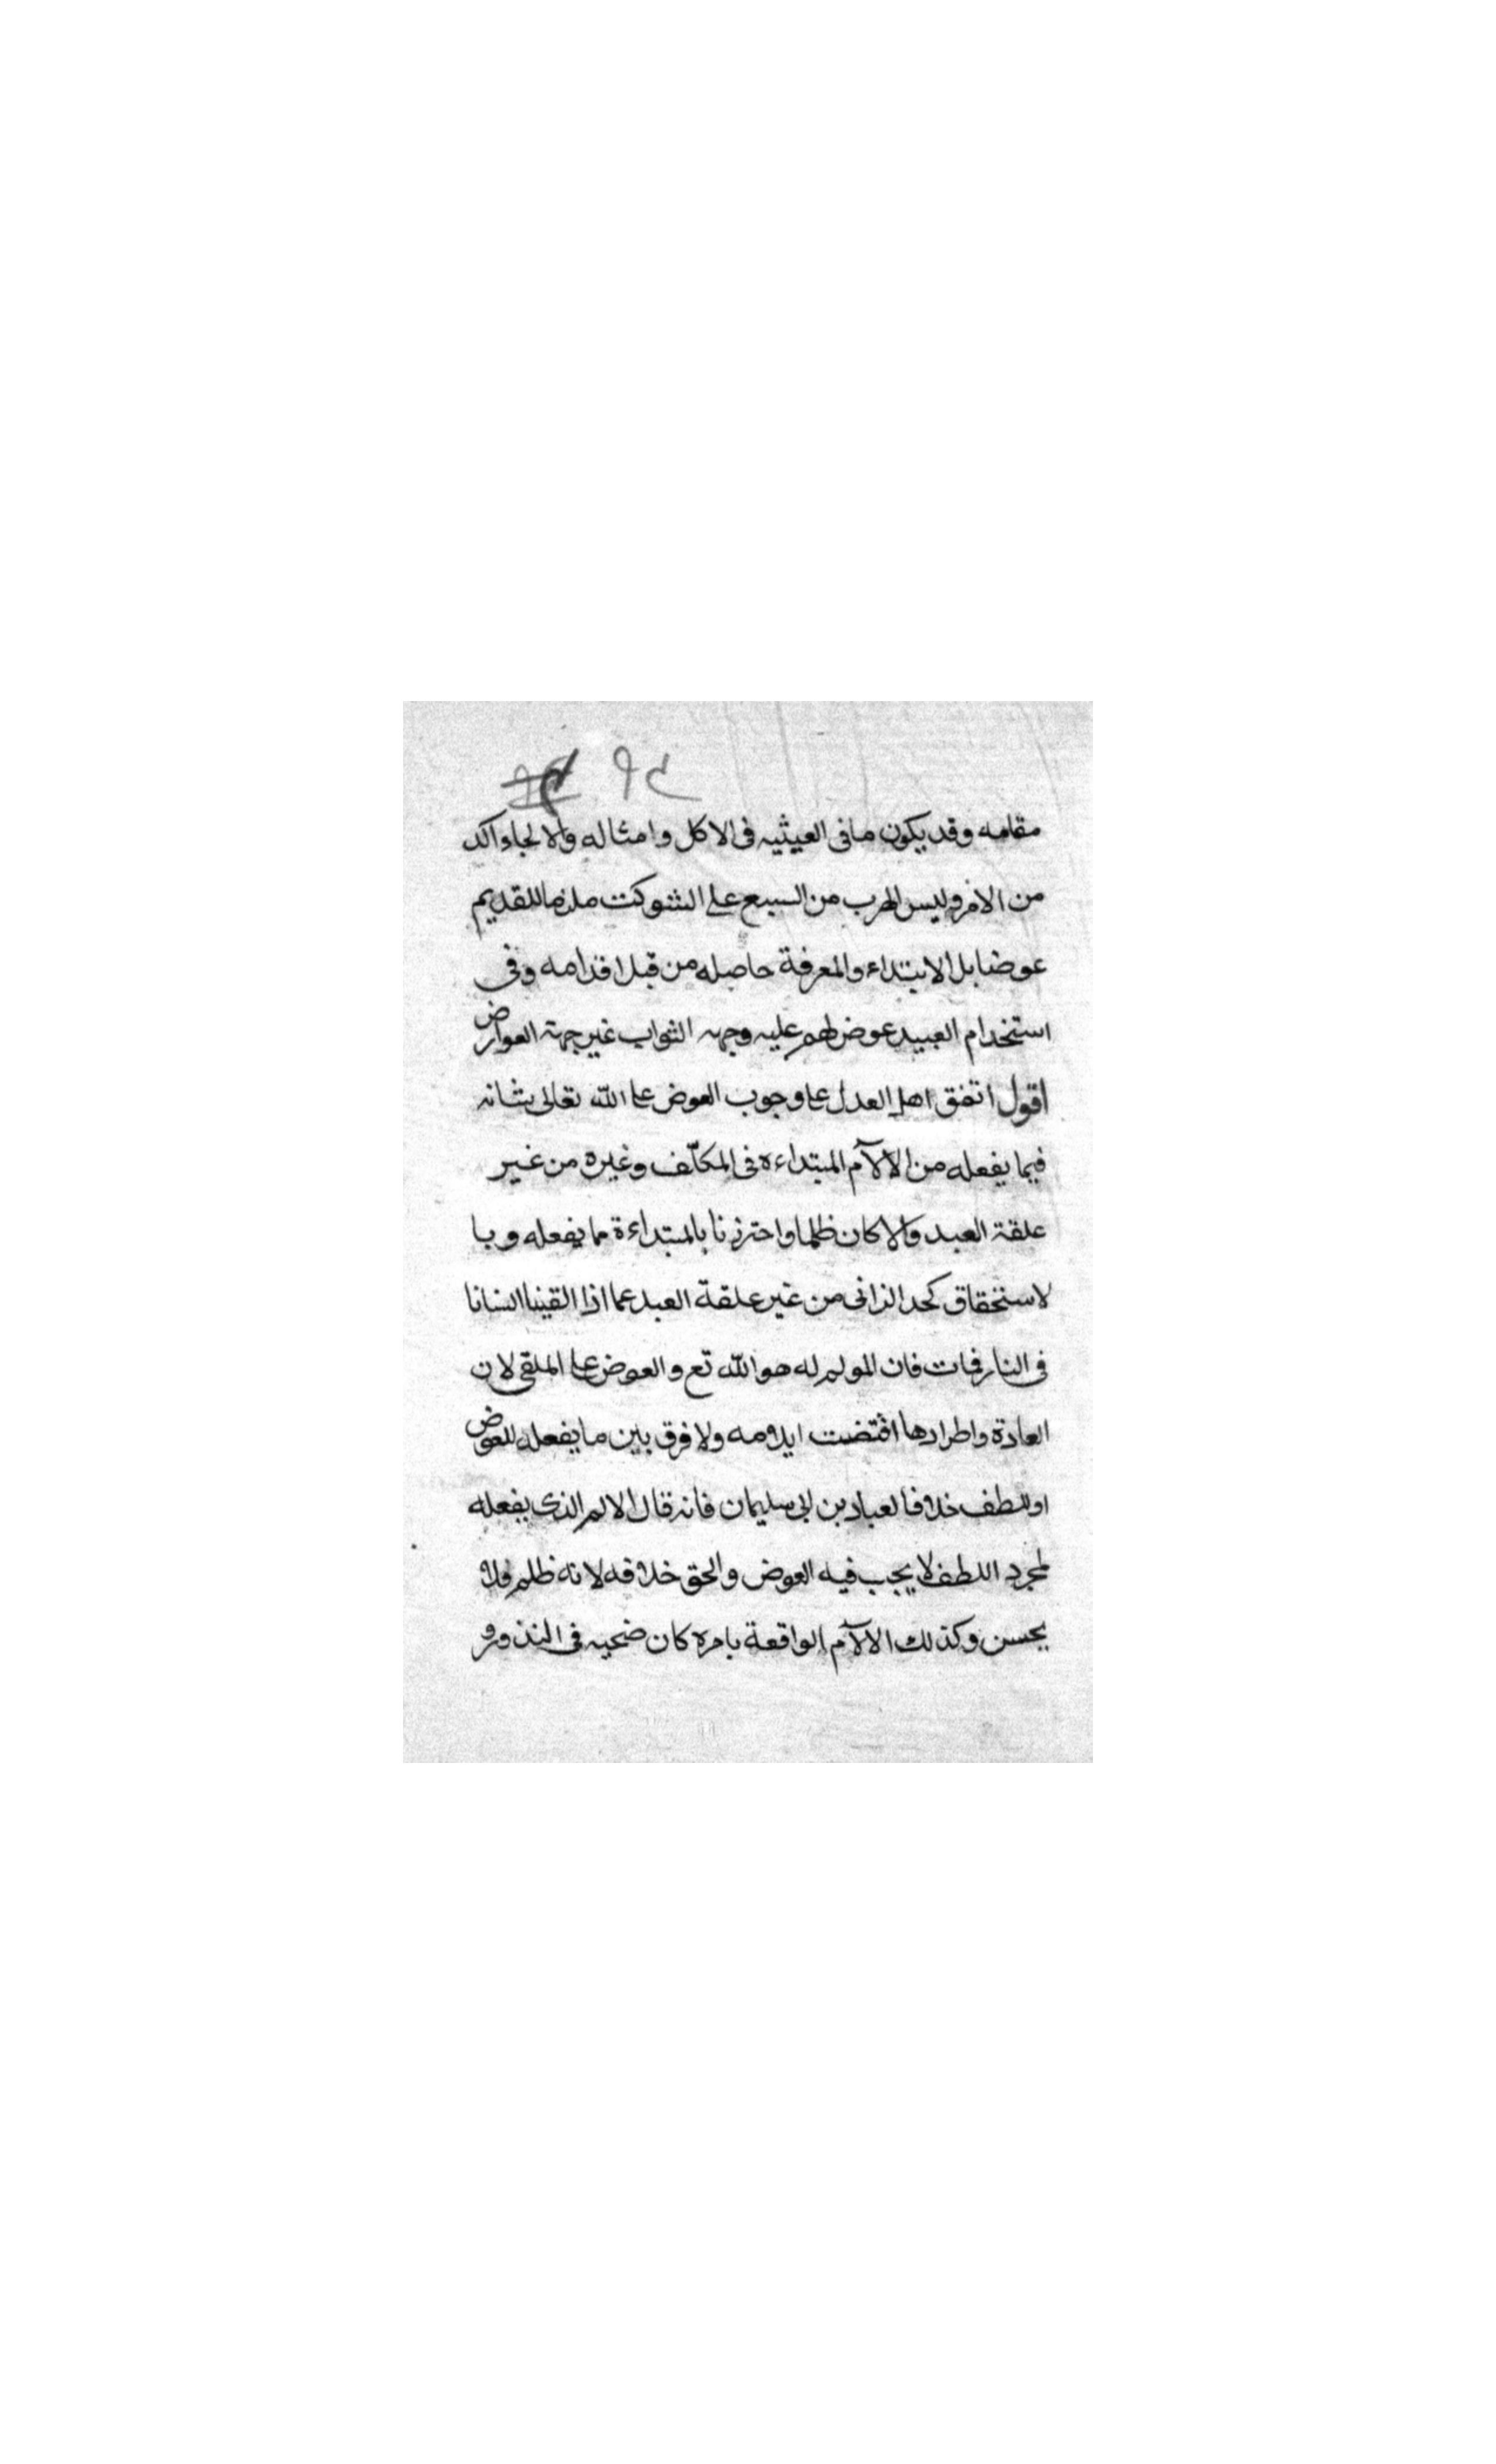 مقامه وقد يكون مافى العيثيه فى الاكل وامثاله والالجاء اكد
من الامر وليس الهرب من السبع على الشوكت ملزما للقديم
عوضا بل الابتداء والمعرفة حاصله من قبل اقدامه وفى
استخدام العبيد عوض لهم عليه وجهه الثواب غير جهة العوارض
اقول اتفق اهل العدل على وجوب العوض على الله تعالى شانه
فيما يفعله من الالآم المبتداءة فى المكلّف وغيره من غير
علقة العبد والا كان ظلما واحترزنا بالمبتداءة مما يفعله وبا
لاستحقاق كحد الزانى من غير علقة العبد عما اذا القينا انسانا
فى النار فمات فان المولم له هو الله تع والعوض على الملقى لان
العادة واطرادها اقتضت ايلامه ولا فرق بين ما يفعله للعوض
او للطف خلافا لعباد بن ابى سليمان فانه قال الالم الذى يفعله
لمجرد اللطف لا يجب فيه العوض والحق خلافه لانه ظلم فلا
يحسن وكذلك الالآم الواقعة بامره كان ضحيه فى النذور و